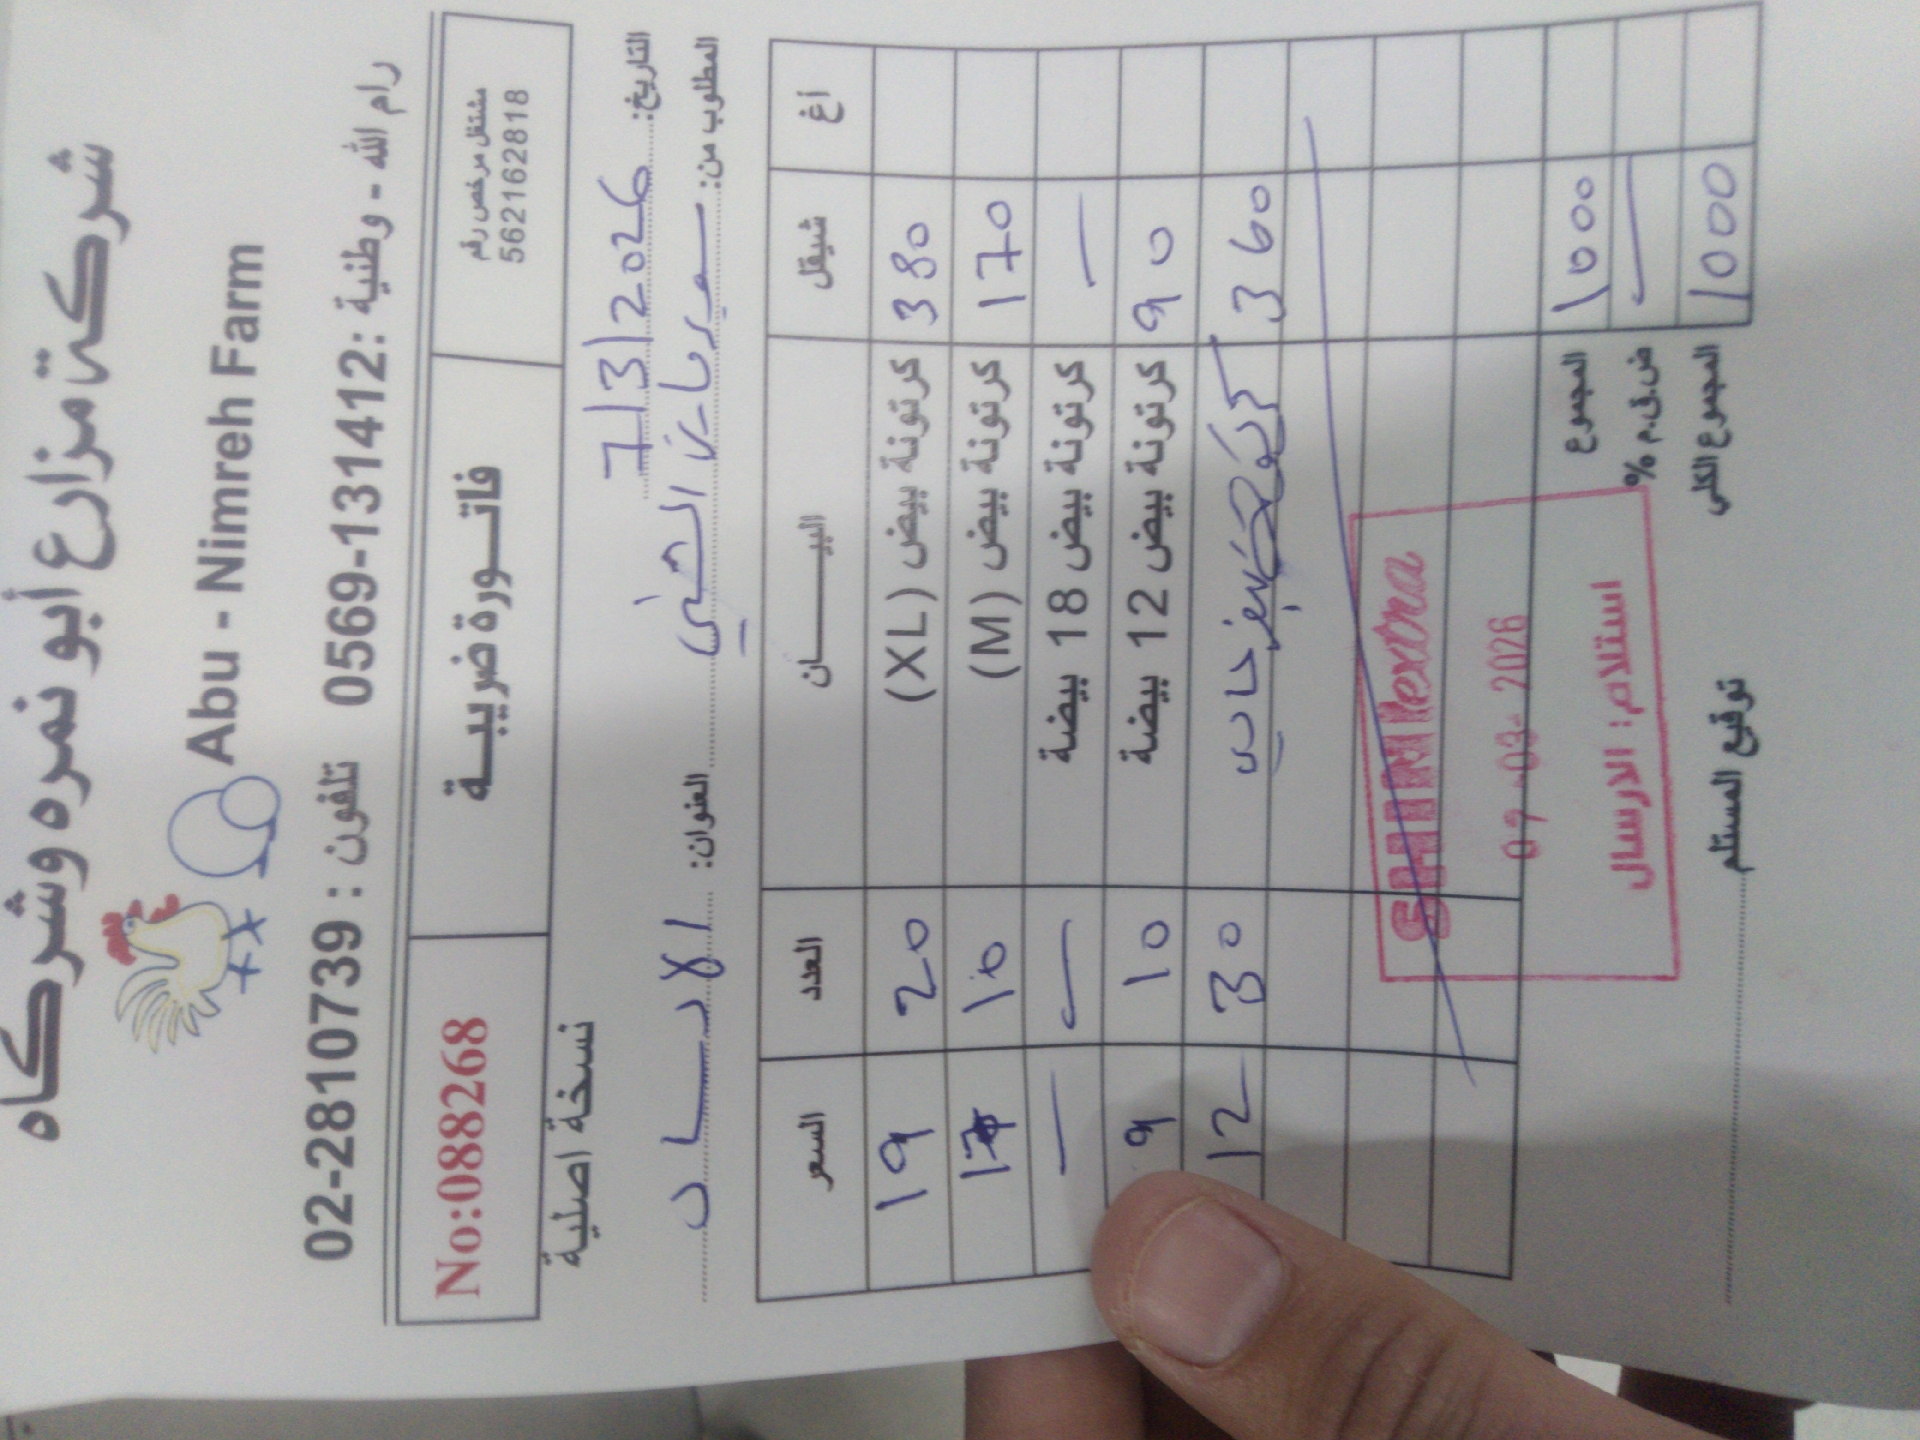 شركة مزارع أبو نمره وشركاه
Abu - Nimreh Farm
رام الله - وطنية: 0569-131412 تلفون : 02-2810739
مشتغل مرخص رقم
562162818
فاتورة ضريبية
No:088268
نسخة اصلية
التاريخ: 7/3/2026
المطلوب من: سوبرماركت الشني العنوان: الارسال
أغ شيقل البيان العدد السعر
380 كرتونة بيض (XL) 20 19
170 كرتونة بيض (M) 10 17
— كرتونة بيض 18 بيضة — —
90 كرتونة بيض 12 بيضة 10 9
360 30 12
المجموع 1000
ض.ق.م % —
المجموع الكلي 1000
SHINI extra
07-03-2026
استلام: الارسال
توقيع المستلم